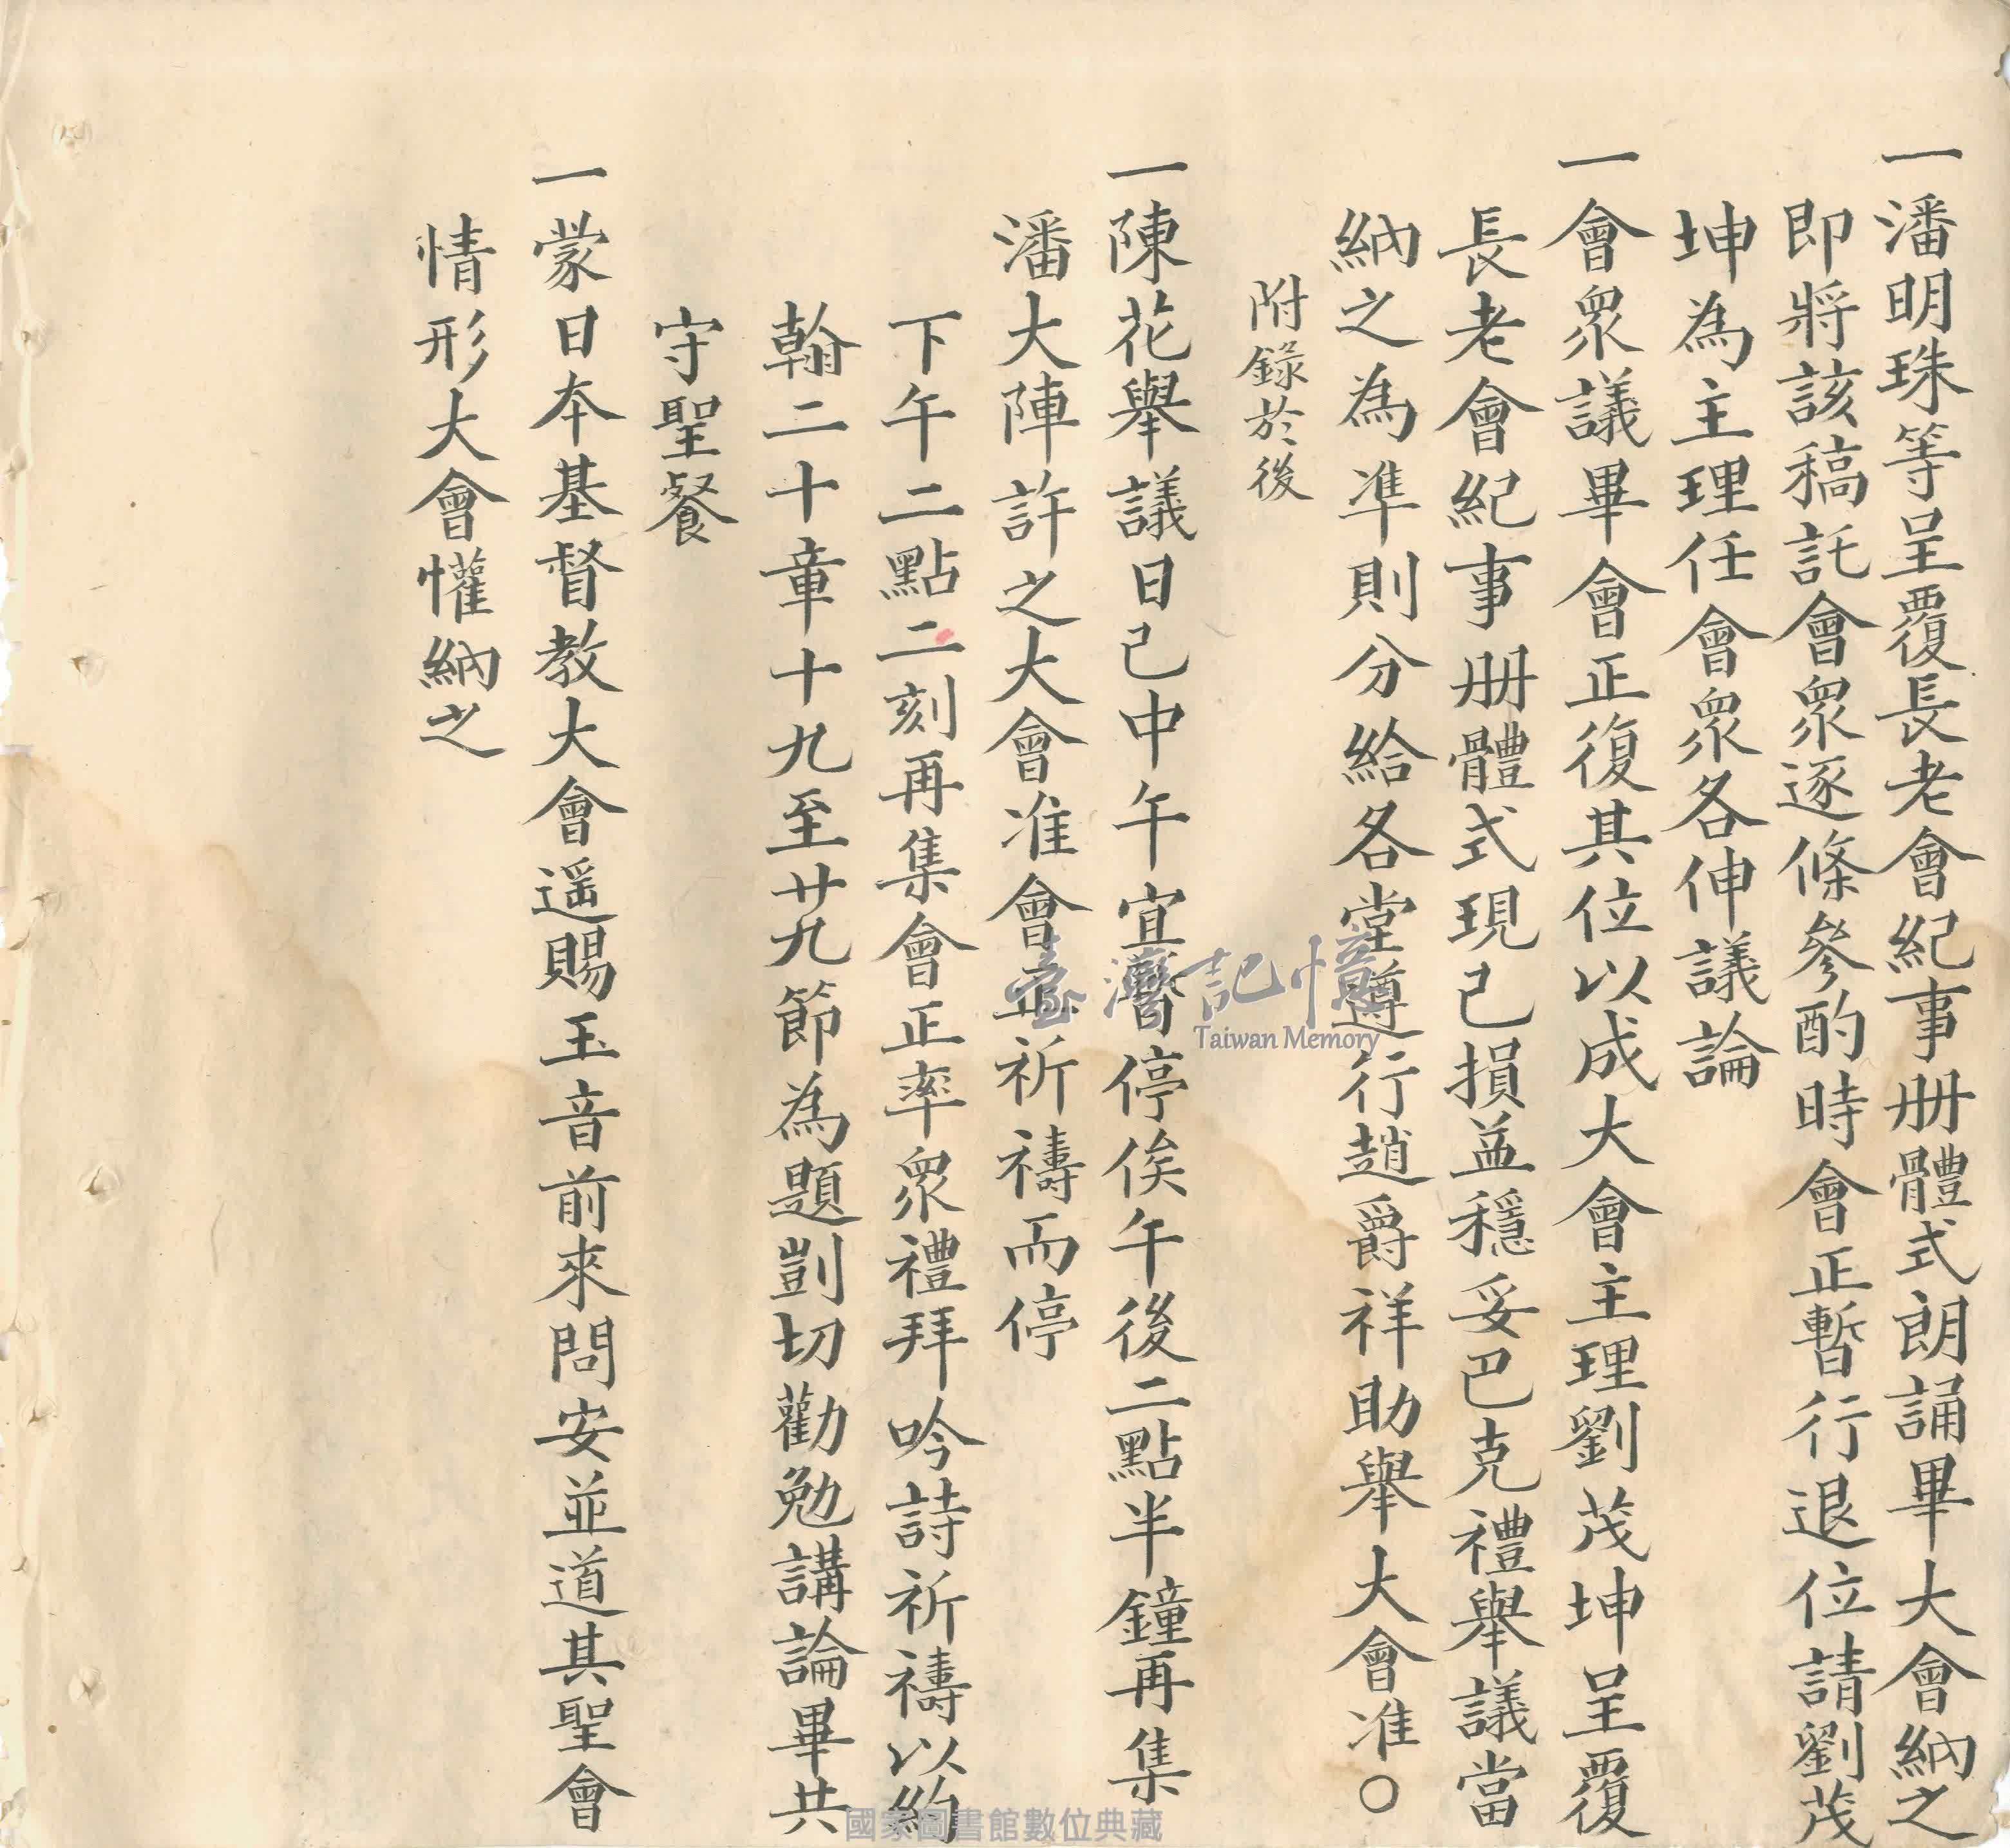 一潘明珠等呈覆長老會紀事册體式朗誦畢大會納之
即將該稿託會眾逐條參酌時會正暫行退位請劉茂
坤為主理任會眾各伸議論
一會眾議畢會正復其位以成大會主理劉茂坤呈覆
長老會紀事册體式現已損益穩妥巴克禮舉議當
納之為準則分給各堂遵行趙爵祥助舉大會准○
附錄於後
一陳花舉議日已中午宜暫停俟午後二點半鐘再集
潘大陣許之大會准會正祈禱而停
下午二點二刻再集會正率眾禮拜吟詩祈禱以約
翰二十章十九至廿九節為題剴切勸勉講論畢共
守聖餐
一蒙日本基督教大會遥賜玉音前來問安並道其聖會
情形大會懽納之
臺灣記憶
Taiwan Memory
國家圖書館數位典藏